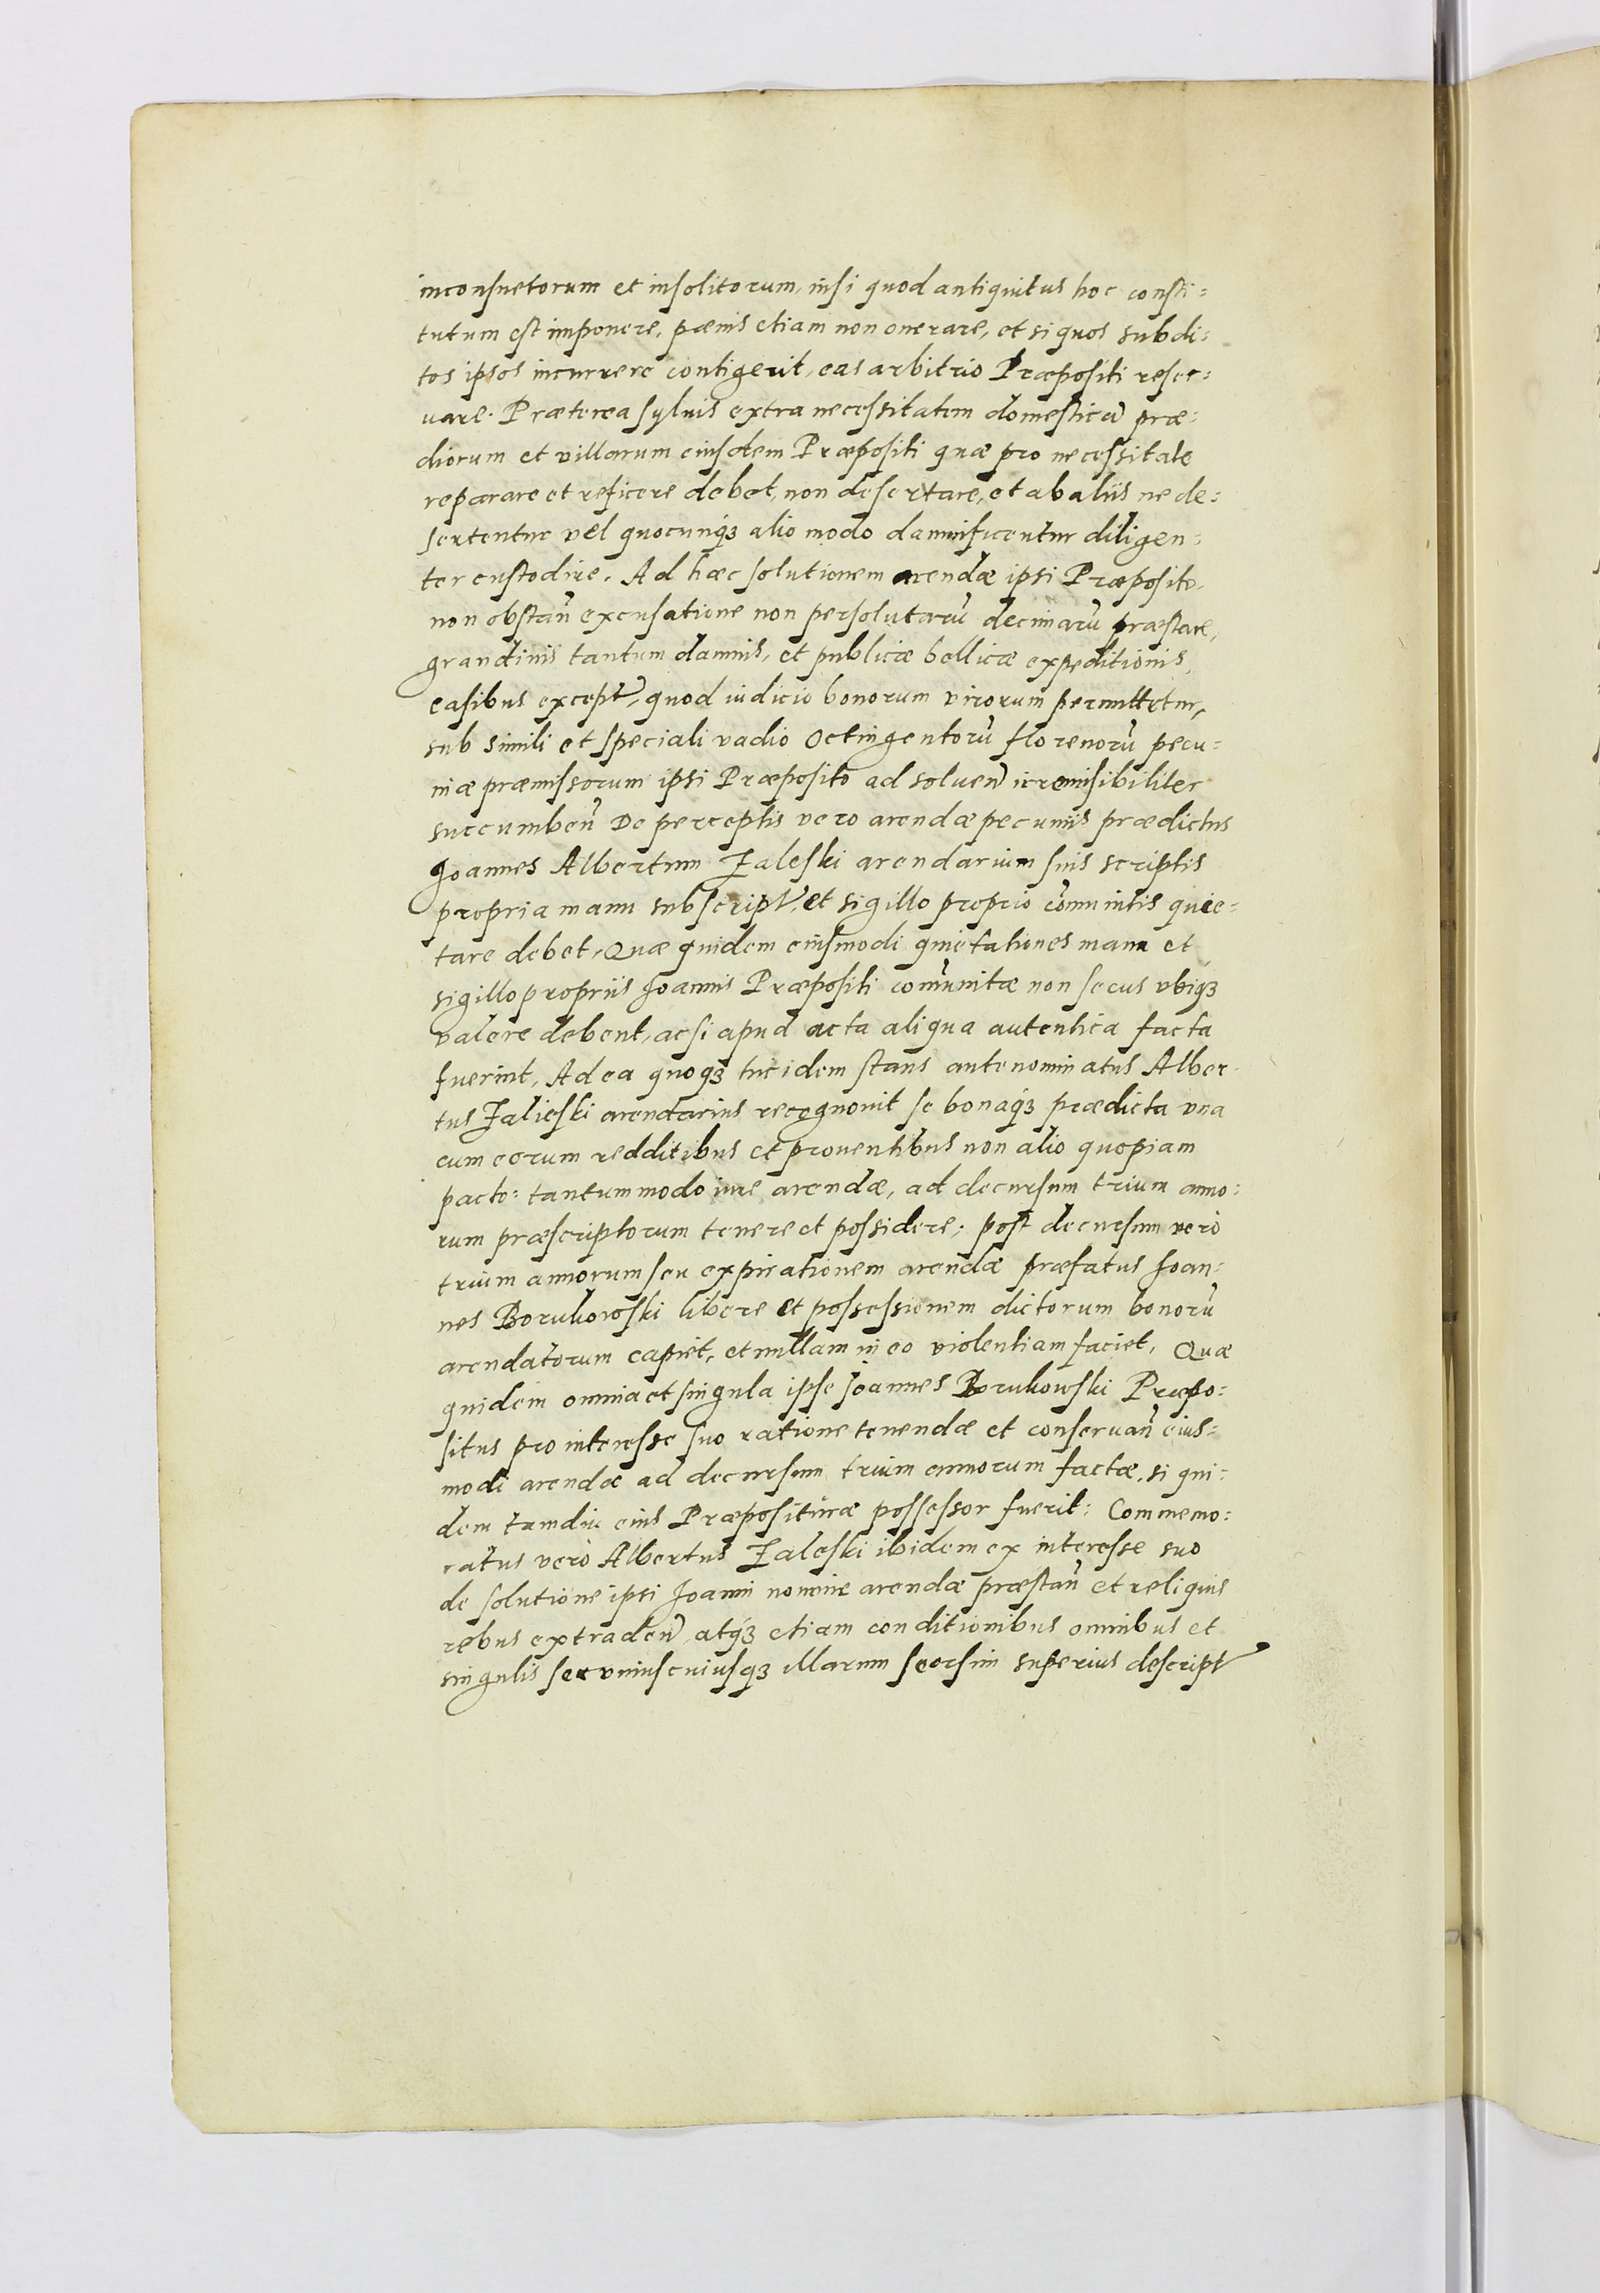 inconsuetorum et insolitorum, nisi quod antiquitus hoc consti=
tutum est imponere, pœnis etiam non onerare, et si quos subdi=
tos ipsos incurrere contigerit, eas arbitrio Præpositi reser=
uare. Præterea syluis extra necessitatem domesticā præ=
diorum et villarum eiusdem Præpositi quæ pro necessitate
reparare et reficere debet, non desertare, et ab aliis ne de=
sertentur vel quocunqȝ alio modo damnificentur diligen=
ter custodire. Ad hæc solutionem arendæ ipsi Præposito
non obstan̄ excusatione non persolutarū decimarū præstare,
grandinis tantum damnis, et publicæ bellicæ expeditionis
casibus except, quod iudicio bonorum virorum permittetur,
sub simili et speciali vadio Octingentorū florenorū pecu=
niæ præmissorum ipsi Præposito ad soluen̄ irremisibiliter
succumben̄ De perceptis vero arendæ pecuniis prædictus
Joannes Albertum Zaleski arendarium suis scriptis
propria manu subscript, et sigillo proprio com̄unitis quie=
tare debet, Quæ quidem eiusmodi quietationes manu et
sigillo propriis Joannis Præpositi com̄unitæ non secus vbiqȝ
valere debent, ac si apud acta aliqua autentica facta
fuerint, Ad ea quoqȝ tuc idem stans antenominatus Alber=
tus Zalieski arendarius recognouit se bonaqȝ prædicta vna
cum eorum redditibus et prouentibus non alio quopiam
pacto: tantummodo iure arendæ, ad decursum trium anno=
rum præscriptorum tenere et possidere; post decursum verò
trium annorum seu expirationem arendæ præfatus Joan=
nes Borukowski libere et possessionem dictorum bonorū
arendatorum capiet, et nullam in eo violentiam faciet, Quæ
quidem omnia et singula ipse Joannes Borukowski Præpo=
situs pro interesse suo ratione tenendæ et conseruan̄ eius=
modi arendæ ad decursum trium annorum factæ, si qui=
dem tamdiu eius Præpositúræ possessor fuerit: Commemo=
ratus verò Albertus Zaleski ibidem ex interesse suo
de solutione ipsi Joanni nomine arendæ præstan̄ et reliquis
rebus extraden̄ atqȝ etiam conditionibus omnibus et
singulis seu vniuscuiusqȝ illarum seorsim superius descript